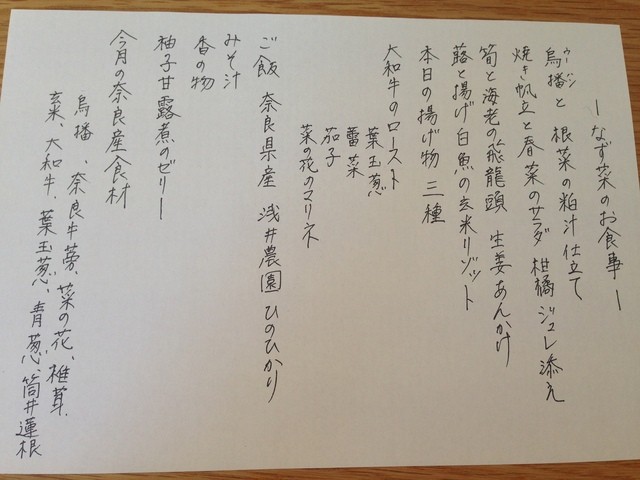 ーなず菜のお食事ー
ウーハン
烏播と 根菜の粕汁仕立て
焼き帆立と春菜のサラダ 柑橘ジュレ添え
筍と海老の飛龍頭 生姜あんかけ
蕗と揚げ白魚の玄米リゾット
本日の揚げ物 三種
大和牛のロースト
葉玉葱
蕾菜
茄子
菜の花のマリネ
ご飯 奈良県産 浅井農園 ひのひかり
みそ汁
香の物
柚子甘露煮のゼリー
今月の奈良産食材
烏播、奈良牛蒡、菜の花、椎茸、
玄米、大和牛、葉玉葱、青葱、筒井蓮根